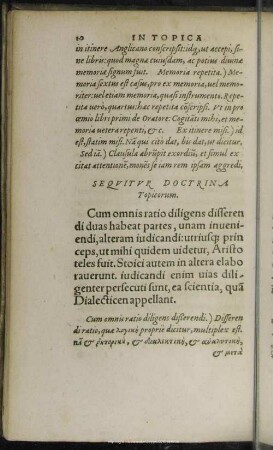 40 IN TOPICA
in itinere Anglicano conscripsit: idq́, ut accepi, si-
ne libris: quod magnæ cuiusdam, ac potius diuinæ
memoriæ signum fuit. Memoria repetita.) Me-
moria sextus est casus, pro ex memoria, uel memo-
riter: uel etiam memoria, quasi instrumento. Repe-
tita uerò, quartus: hac repetita cōscripsi. Vt in pro
œmio libri primi de Oratore: Cogitāti mihi, et me-
moria uetera repenti, &c. Ex itinere misi.) id
est, statim misi. Nā qui citò dat, bis dat, ut dicitur.
Sed iā.) Clausula abrūpit exordiū, et simul ex-
citat attentionē, monēs se iam rem ipsam aggredi.
SEQVITVR DOCTRINA
Topicorum.
Cum omnis ratio diligens disseren
di duas habeat partes, unam inueni-
endi, alteram iudicandi: utriusq; prin
ceps, ut mihi quidem uidetur, Aristo
teles fuit. Stoici autem in altera elabo
rauerunt. iudicandi enim uias dili-
genter persecuti sunt, ea scientia, quā
Dialecticen appellant.
Cum omnis ratio diligens disserendi.) Disseren
di ratio, quæ λογικὴ propriè dicitur, multiplex est.
nā & ῥητορικὴ, & διαλεκτικὴ, & ἀναλυτικὴ,
& μετὰ